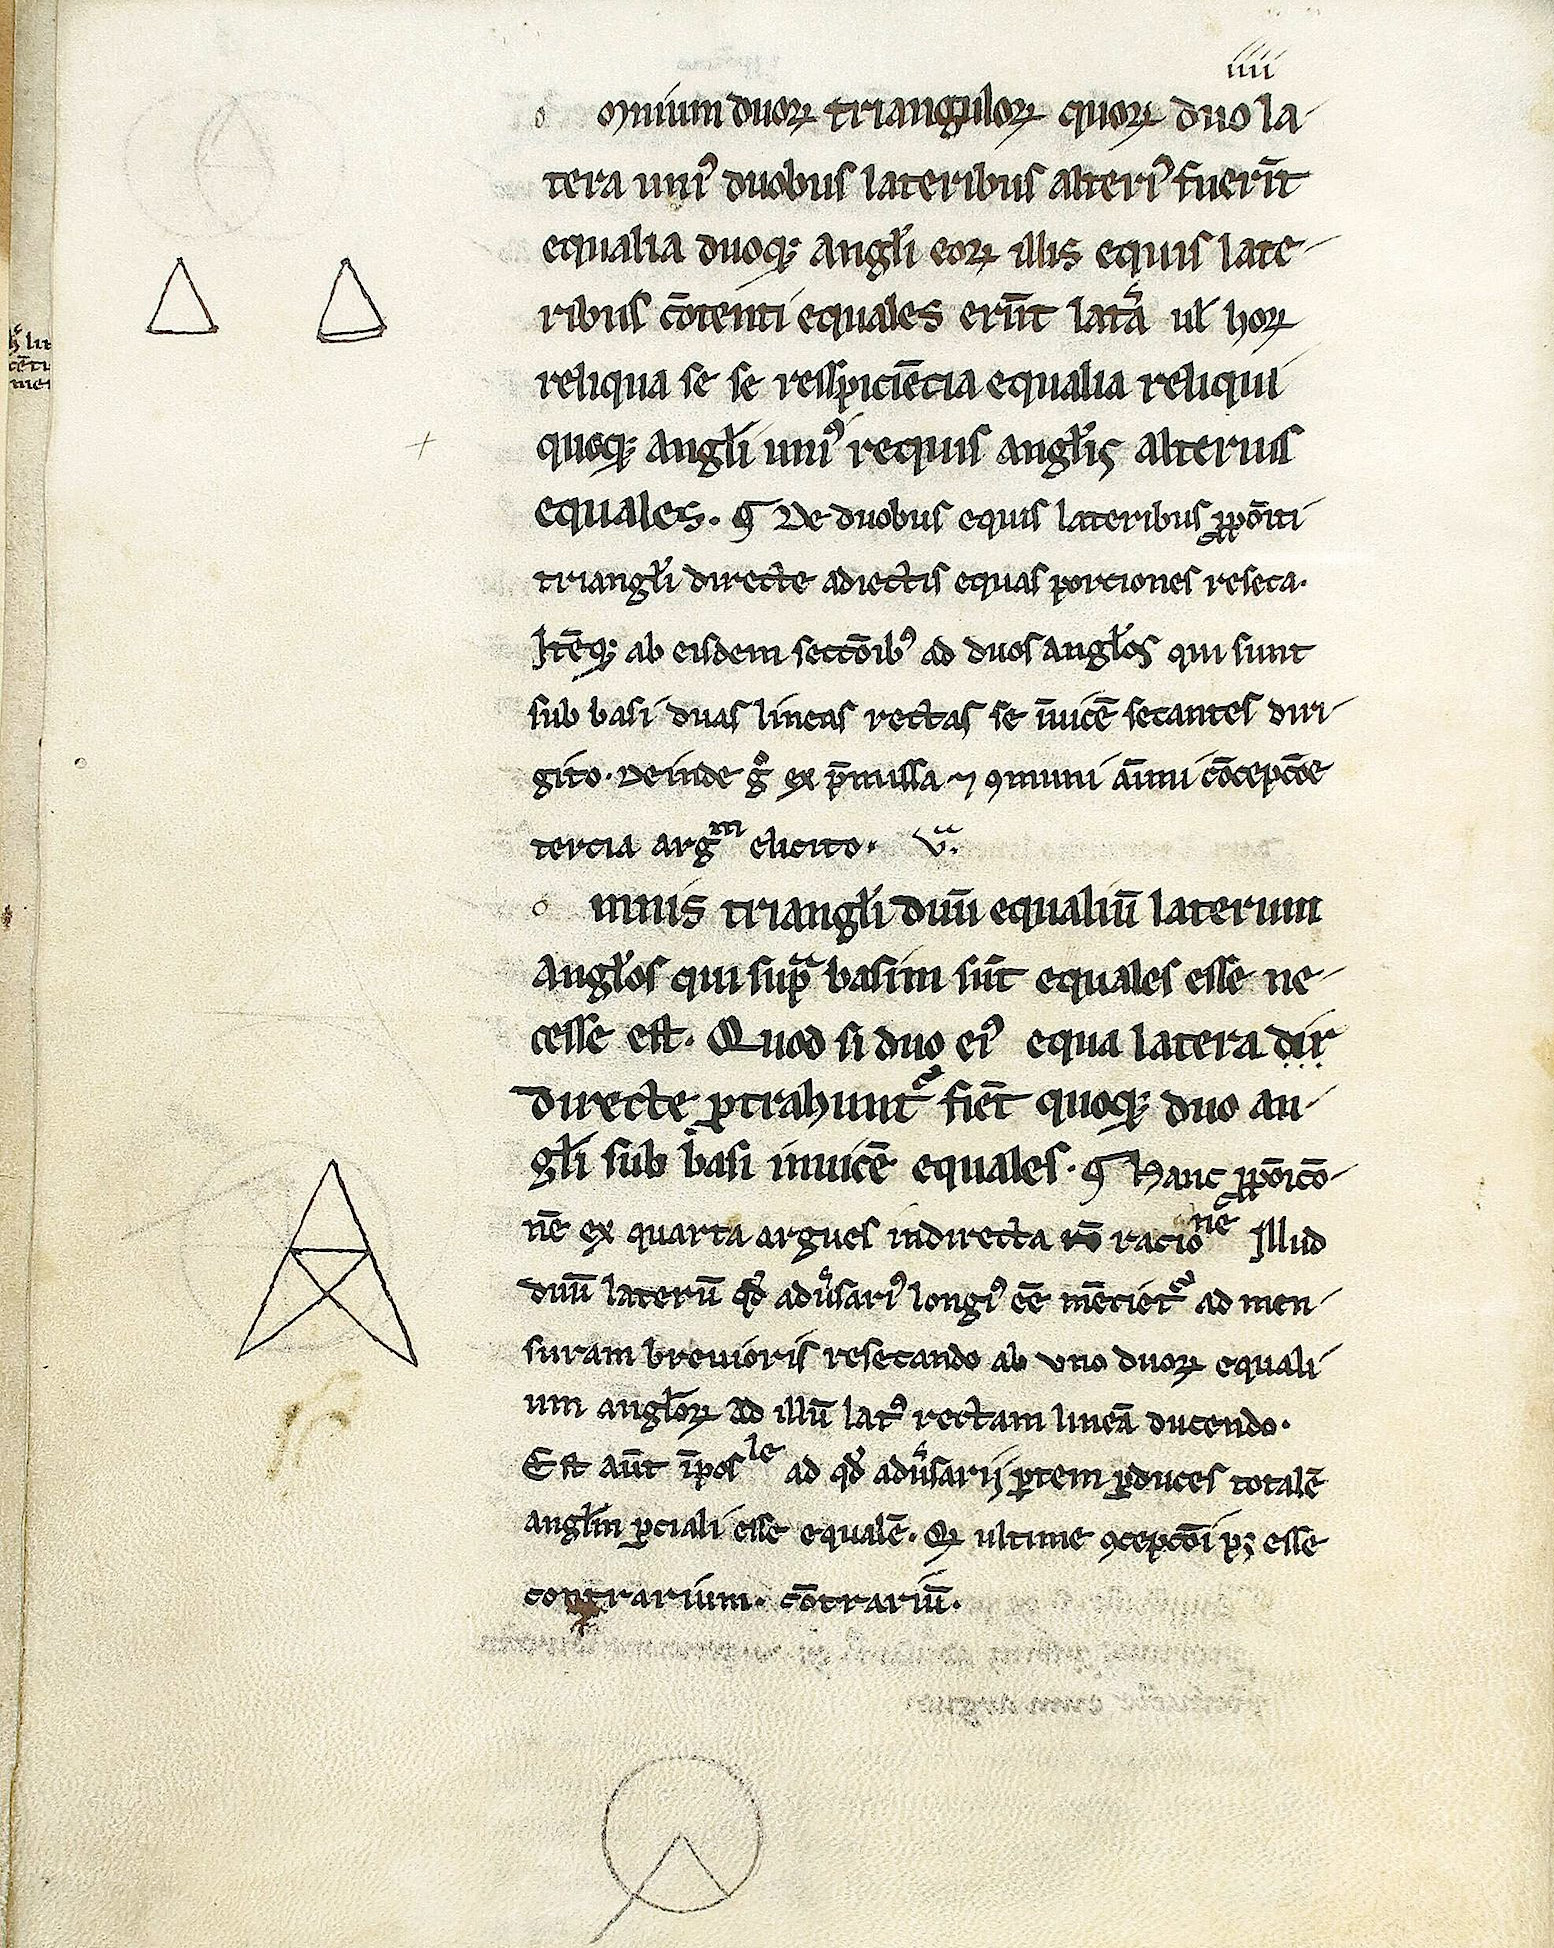 iiii
o mnium duoꝝ trianguloꝝ quoꝝ duo la-
tera uniꝰ duobus lateribus alteriꝰ fuerīt
equalia duoqꝫ angľi eoꝝ illis equis late-
ribus c̄otenti equales erūt lat̄a ul hoꝝ
reliqua se se resspiciēcia equalia reliqui
quoqꝫ angľi uniꝰ requis angľis alterius
equales. ¶ De duobus equis lateribus ꝓpōiti
triangľi directe adiectis equas porciones reseca.
Itēqꝫ ab eisdem seccōibꝰ ad duos angľos qui sunt
sub basi duas lineas rectas se īuicē secantes diri-
gito. Deinde gͦ ex p̄missa ⁊ ꝯmuni āimi cōcepcōe
tercia argᵐ elicito. v.ᵃ
o mnis triangľi duū equaliū laterum
angľos qui supᵃ basim sūt equales esse ne-
cesse est. Quod si duo eiꝰ equa latera dir
directe ꝓtrahunt᷑ fiēt quoqꝫ duo an-
gľi sub basi inuicē equales. ¶ Hanc ꝓpōicō-
nē ex quarta argues indirecta rō racioⁿᵉ̄ Illud
duū laterū qď adůsariꝰ longiꝰ eē mēciet᷑ ad men-
suram breuioris resecando ab uno duoꝝ equali
um angľoꝝ ad illū latꝰ rectam lineā ducendo.
Est aūt īposˡᵉ ad qď adůsarij ꝑtem ꝑduces totalē
angľm ꝑciali esse equalē. Qꝫ ultime ꝯcepcōi pꝫ esse
contrarium. cōtrariū.